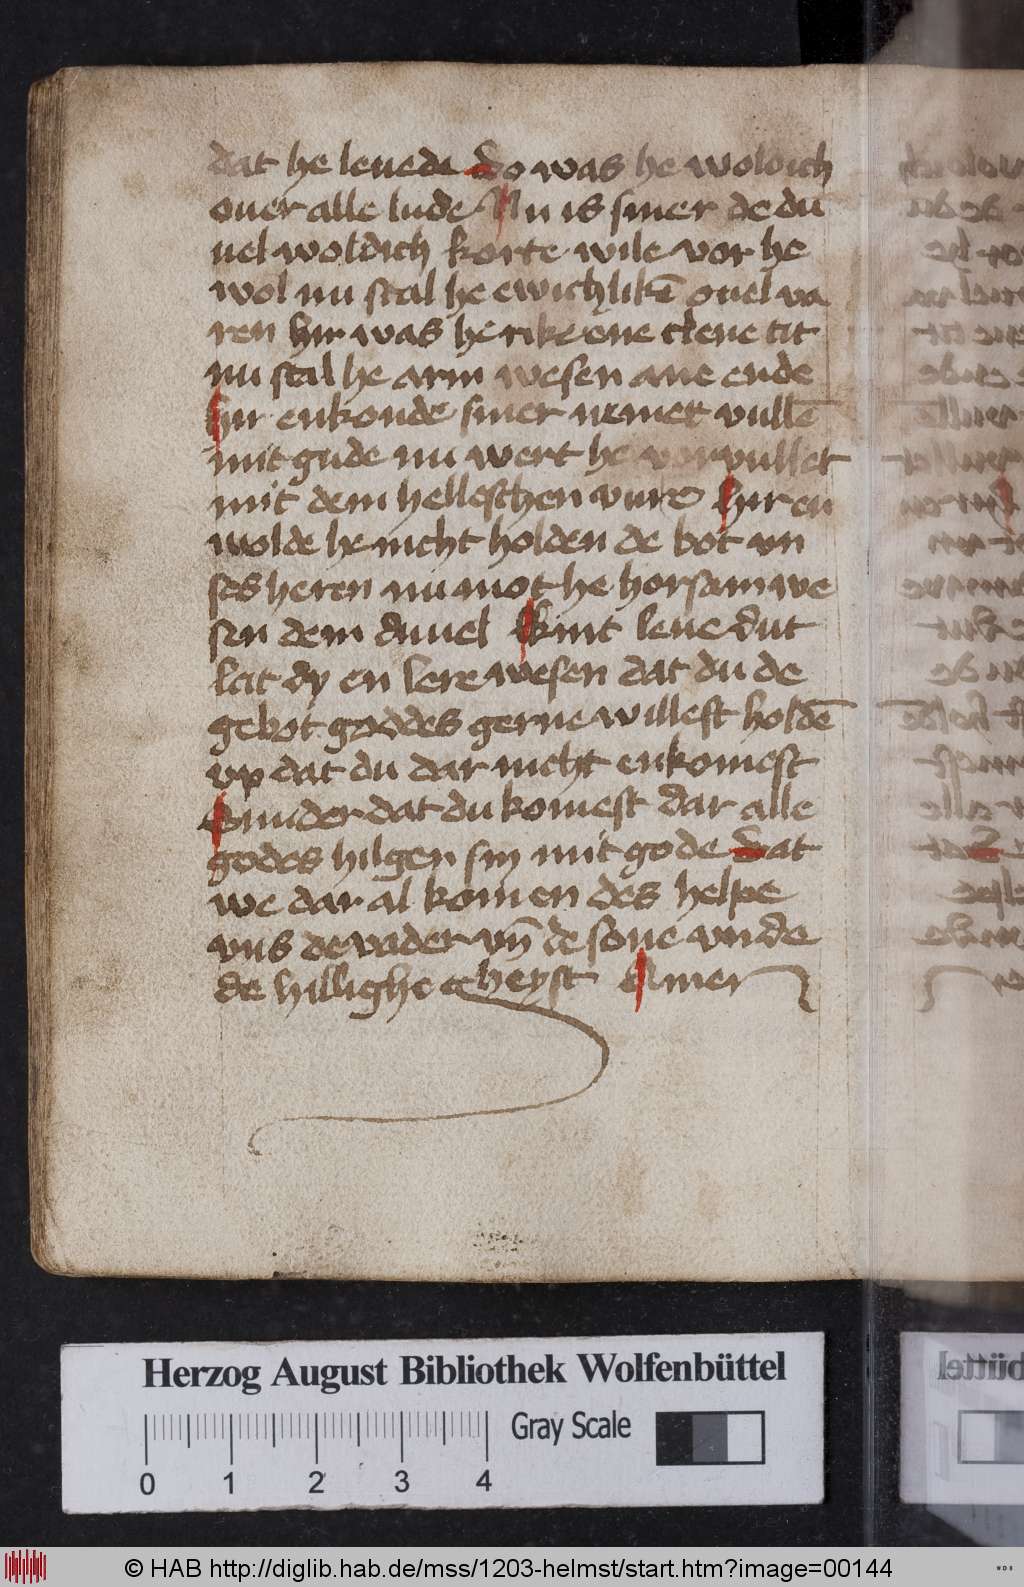 dat he leuede do was he woldich
ouer alle lude Nu is siner de du
uel woldich korte wile vor he
wol nu scal he ewichlikē ouel va
ren hir was he rike one clene tit
nu scal he arm wesen ane ende
hir enkonde siner nemet vullē
mit gude nu wert he vorvullet
mit dem helleschen vure hir en
wolde he nicht holden de bot vn
ses heren nu mot he horsam we
sen dem duuel Kint leue dut
lat dy en lere wesen dat du de
gebot goddes gerne willest holdē
vp dat du dar nicht enkomest
Sunder dat du komest dar alle
godes hilgen sin mit gode dat
we dar al komen des helpe
vns de vader vn̄ de sone vnde
de hillighe gheyst Amen
Herzog August Bibliothek Wolfenbüttel
Gray Scale
0 1 2 3 4
© HAB http://diglib.hab.de/mss/1203-helmst/start.htm?image=00144